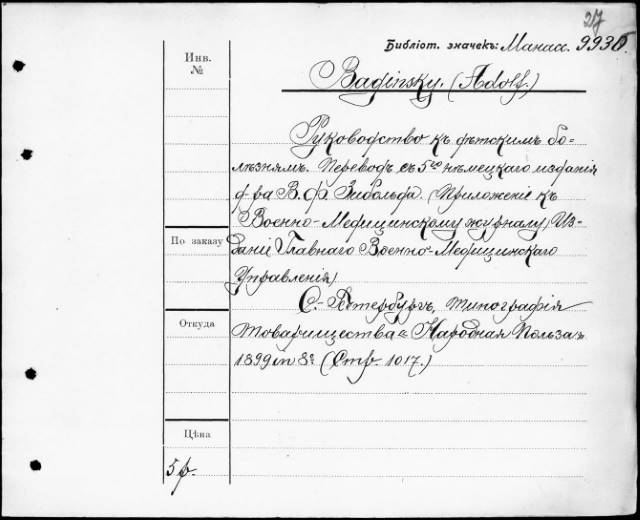 27
Библіот. значекъ: Манас. 9930
Инв.
№
Baginsky. (Adolf.)
Руководство къ дѣтскимъ бо-
лѣзнямъ. Переводъ съ 5го нѣмецкаго изданія
д-ра В. Ф. Зибольда. (Приложеніе къ
Военно-Медицинскому журналу) Из-
По заказу
даніе Главнаго Военно-Медицинскаго
Управленія)
С.-Петербургъ, типографія
Откуда
товарищества "Народная Польза"
1899 in 8º (Стр. 1017.)
Цѣна
5 р.